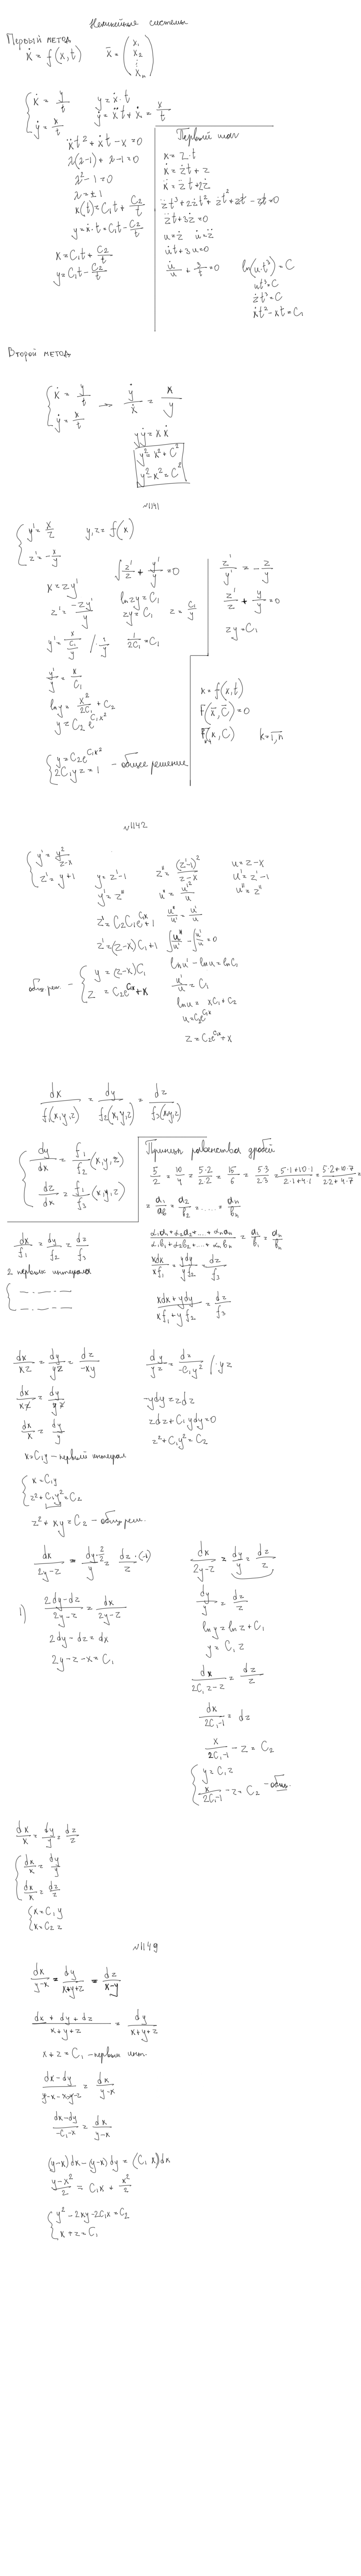 Нелинейные системы
Первый метод
ẋ = f(x, t)   x̄ = (x₁ x₂ ⋮ xₙ)
{ẋ = y/t   y = ẋ·t
{ẏ = x/t   ẏ = ẍt + ẋ = x/t
ẍt² + ẋt - x = 0
λ(λ-1) + λ-1 = 0
λ² - 1 = 0
λ = ±1
x(t) = C₁t + C₂/t
y = ẋ·t = C₁t - C₂/t
x = C₁t + C₂/t
y = C₁t - C₂/t
x = z·t
ẋ = żt + z
ẍ = z̈t + 2ż
z̈t³ + 2żt² + żt² + zt - zt = 0
z̈t + 3ż = 0
u = ż   u̇ = z̈
u̇t + 3u = 0
u̇/u + 3/t = 0   ln(u·t³) = C
ut³ = C
żt³ = C
ẋt² - xt = C₁
Второй метод
{ẋ = y/t
{ẏ = x/t   →   ẏ/ẋ = x/y
yẏ = xẋ
y² = x² + C²
y² - x² = C²
№1141
{y' = x/z   y, z = f(x)
{z' = -x/y
x = zy'
z' = -zy'/y
∫z'/z + y'/y = 0
ln zy = C₁
zy = C₁   z = C₁/y
y' = x/(C₁/y)   /·1/y   1/2C₁ = C₁
y'/y = x/C₁
ln y = x²/2C₁ + C₂
y = C₂e^(C₁x²)
{y = C₂e^(C₁x²)
{2C₁yz = 1   - общее решение
z'/y' = -z/y
z'/z + y/y = 0
zy = C₁
x = f(x, t)
F(x̄, C̄) = 0
Fₖ(x, C)   k = 1, n
№1142
{y' = y²/(z-x)
{z' = y+1   y = z'-1
y' = z''
z'' = (z'-1)²/(z-x)
u = z-x
u' = z'-1
u'' = z''
u'' = u'²/u
u''/u' = u'/u
∫u''/u' - ∫u'/u = 0
ln u' - ln u = ln C₁
u'/u = C₁
ln u = xC₁ + C₂
u = C₂e^(C₁x)
z = C₂e^(C₁x) + x
z' = C₂C₁e^(C₁x) + 1
z' = (z-x)C₁ + 1
общ реш. - {y = (z-x)C₁
{z = C₂e^(C₁x) + x
dx/f₁(x,y,z) = dy/f₂(x,y,z) = dz/f₃(x,y,z)
{dy/dx = f₁/f₂ (x,y,z)
{dz/dx = f₁/f₃ (x,y,z)
Принцип равенства дробей
5/2 = 10/4 = 5·2/2·2 = 15/6 = 5·3/2·3 = (5·1+10·1)/(2·1+4·1) = (5·2+10·7)/(2·2+4·7) =
= a₁/b₁ = a₂/b₂ = ..... = aₙ/bₙ
(α₁a₁+α₂a₂+...+αₙaₙ)/(α₁b₁+α₂b₂+...+αₙbₙ) = a₁/b₁ = aₙ/bₙ
dx/f₁ = dy/f₂ = dz/f₃
2 первых интеграла
xdx/xf₁ = ydy/yf₂ = dz/f₃
(xdx+ydy)/(xf₁+yf₂) = dz/f₃
dx/xz = dy/yz = dz/-xy
dx/xz = dy/yz
dx/x = dy/y
x = C₁y - первый интеграл
{x = C₁y
{z² + C₁y² = C₂
z² + xy = C₂ - общ реш.
dy/yz = dz/-C₁y²   /·yz
-ydy = zdz
zdz + C₁ydy = 0
z² + C₁y² = C₂
dx/(2y-z) = dy·2/y·2 = dz/z·(-1)
1) (2dy-dz)/(2y-z) = dx/(2y-z)
2dy - dz = dx
2y - z - x = C₁
dx/(2y-z) = dy/y = dz/z
dy/y = dz/z
ln y = ln z + C₁
y = C₁z
dx/(2C₁z-z) = dz/z
dx/(2C₁-1) = dz
x/(2C₁-1) - z = C₂
{y = C₁z
{x/(2C₁-1) - z = C₂ - общ.
dx/x = dy/y = dz/z
{dx/x = dy/y
{dx/x = dz/z
{x = C₁y
{x = C₂z
№1149
dx/(y-x) = dy/(x+y+z) = dz/(x-y)
(dx+dy+dz)/(x+y+z) = dy/(x+y+z)
x + z = C₁ - первый инт.
(dx-dy)/(y-x-x-y-z) = dx/(y-x)
(dx-dy)/(-C₁-x) = dx/(y-x)
(y-x)dx - (y-x)dy = (C₁ x)dx
(y-x²)/2 = C₁x + x²/2
{y² - 2xy - 2C₁x = C₂
{x + z = C₁